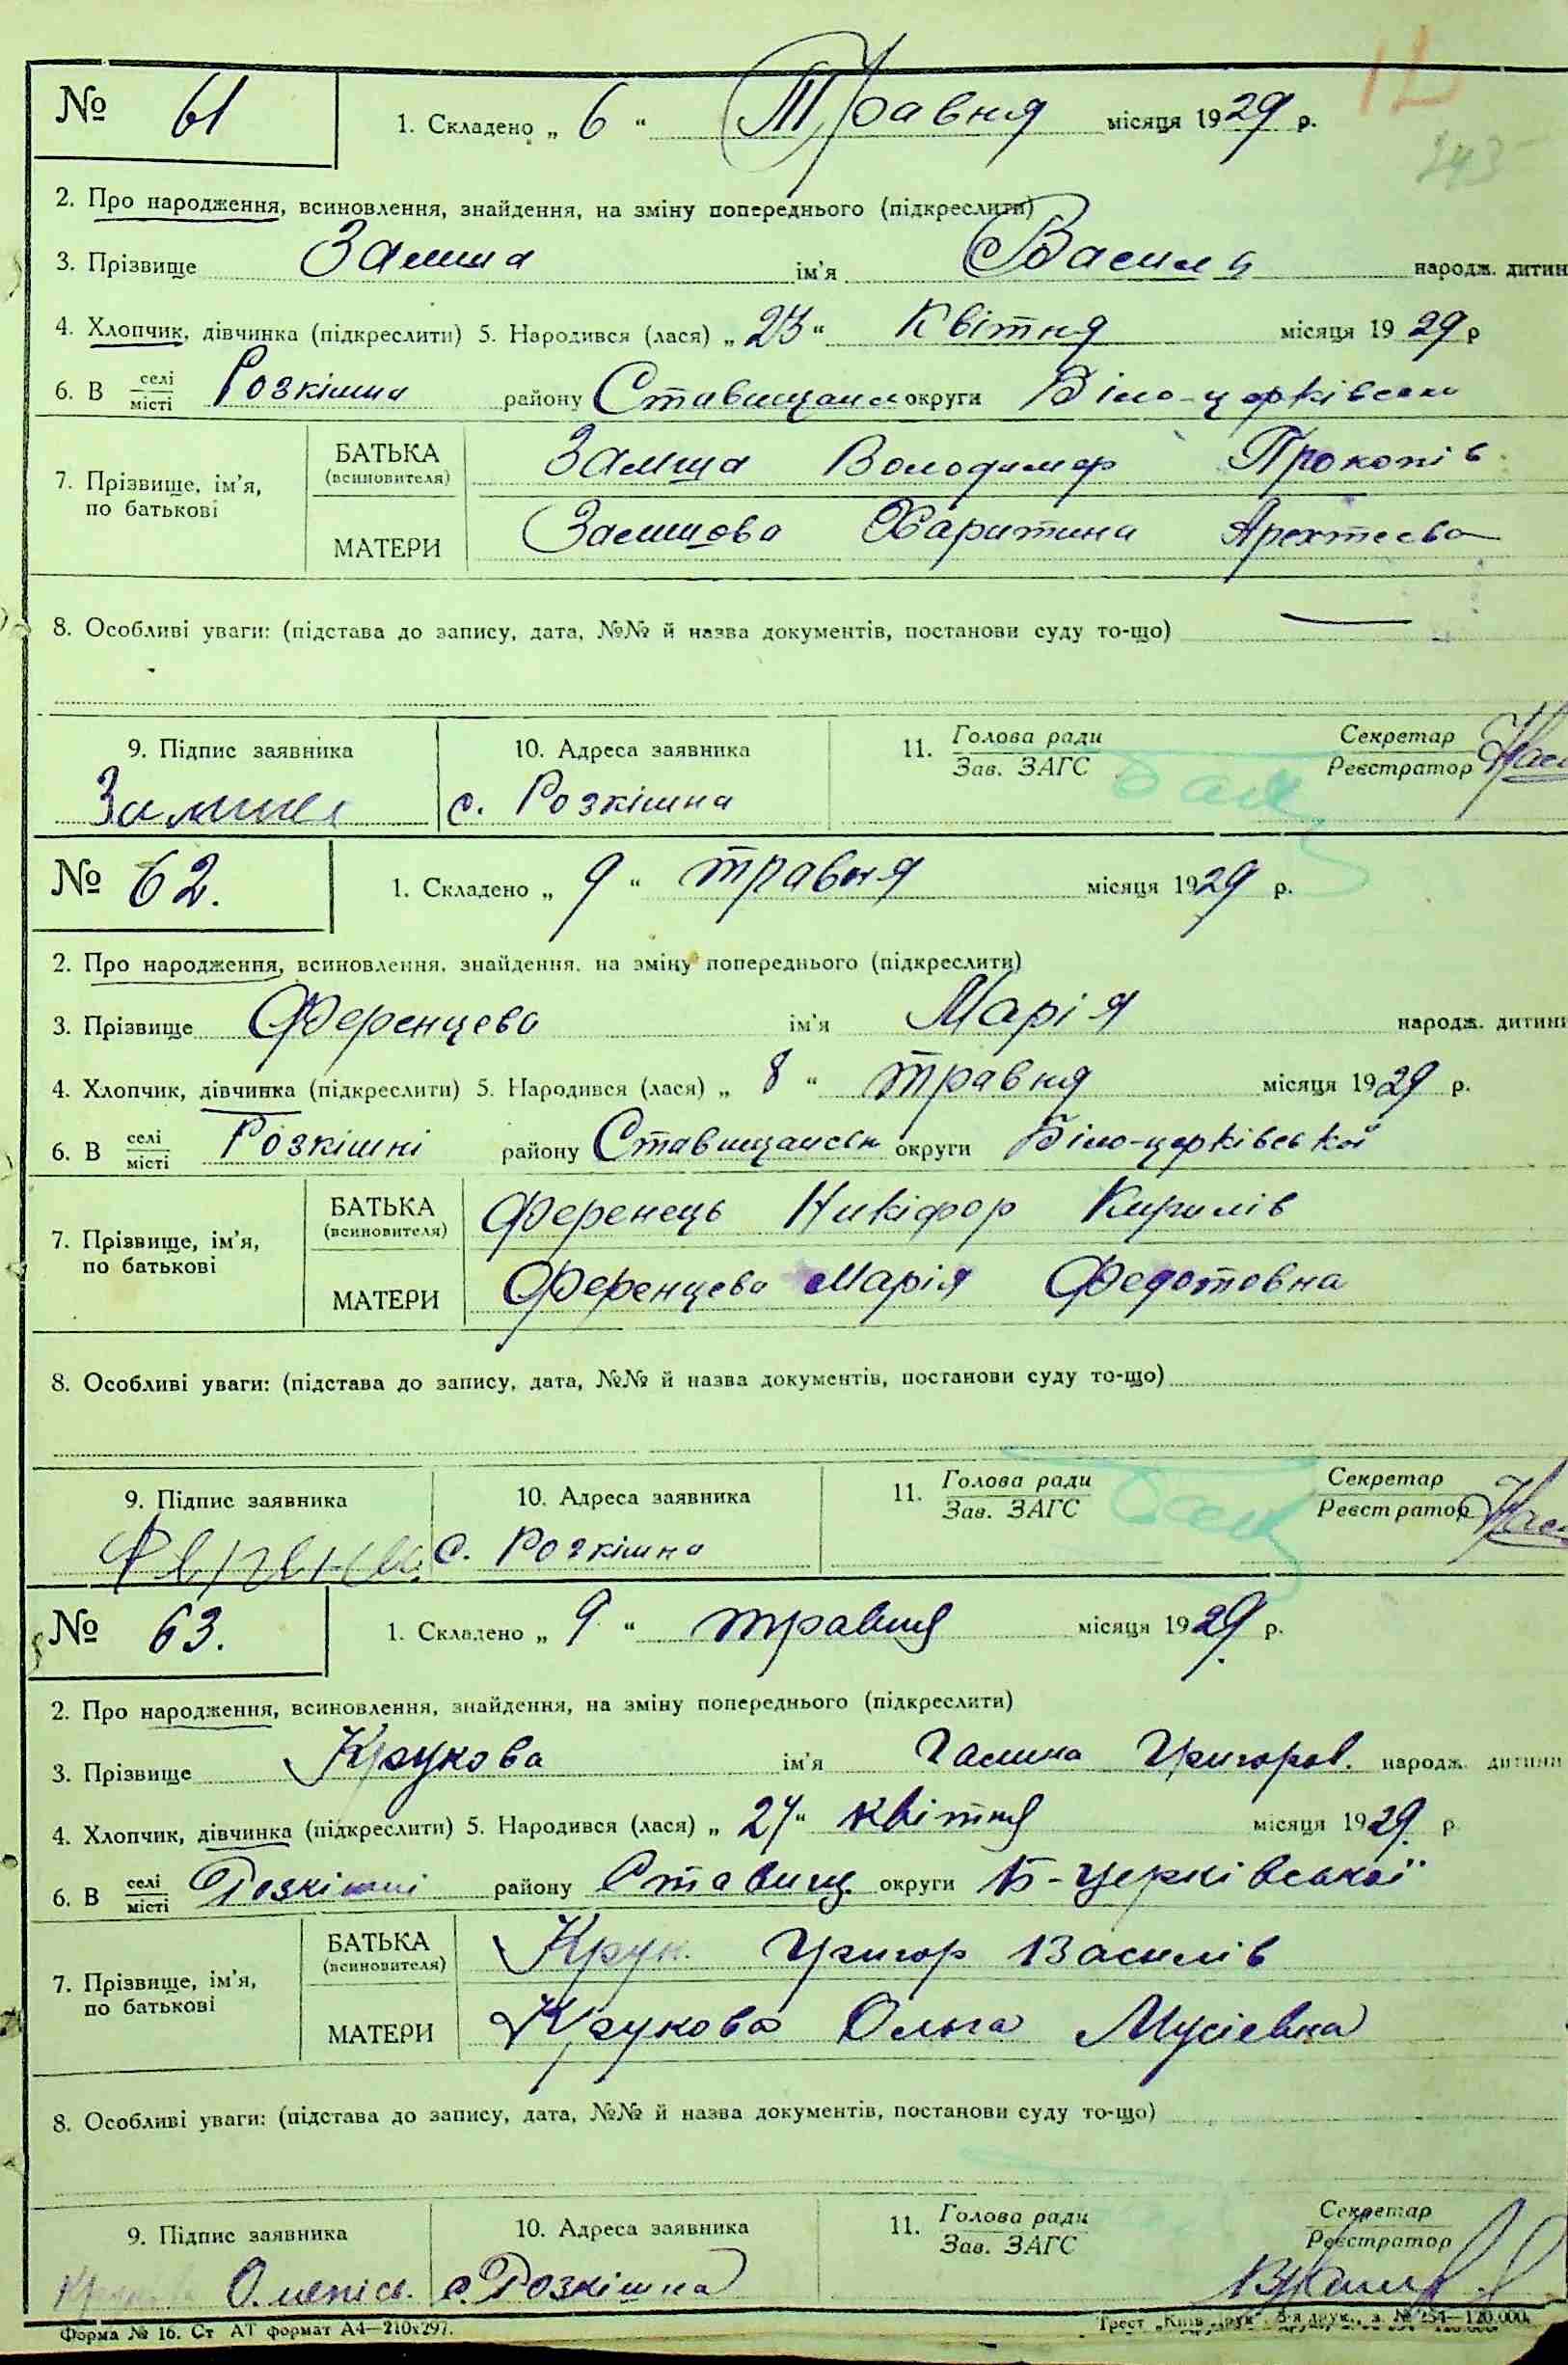 12
243
№ 61
1. Складено „ 6 “ Травня місяця 1929 р.
2. Про народження, всиновлення, знайдення, на зміну попереднього (підкреслити)
3. Прізвище Замша ім'я Василь народж. дитин
4. Хлопчик, дівчинка (підкреслити) 5. Народився (лася) „ 23 “ Квітня місяця 1929 р
6. В селі місті Розкішна району округи Біло-церківськ
7. Прізвище, ім'я, по батькові
БАТЬКА (всиновителя) Замша Володимер Прокопів
МАТЕРИ Замшова Харитина
8. Особливі уваги: (підстава до запису, дата, №№ й назва документів, постанови суду то-що) —
9. Підпис заявника 10. Адреса заявника 11. Голова ради Зав. ЗАГС Секретар Реєстратор
Замша с. Розкішна
№ 62.
1. Складено „ 9 “ травня місяця 1929 р.
2. Про народження, всиновлення, знайдення, на зміну попереднього (підкреслити)
3. Прізвище Ференцева ім'я Марія народж. дитини
4. Хлопчик, дівчинка (підкреслити) 5. Народився (лася) „ 8 “ травня місяця 1929 р.
6. В селі місті Розкішні району округи Біло-церківської
7. Прізвище, ім'я, по батькові
БАТЬКА (всиновителя) Ференець Никіфор Кирилів
МАТЕРИ Ференцева Марія Федотовна
8. Особливі уваги: (підстава до запису, дата, №№ й назва документів, постанови суду то-що)
9. Підпис заявника 10. Адреса заявника 11. Голова ради Зав. ЗАГС Секретар Реєстратор
с. Розкішна
№ 63.
1. Складено „ 9 “ травня місяця 1929 р.
2. Про народження, всиновлення, знайдення, на зміну попереднього (підкреслити)
3. Прізвище Крукова ім'я Галина Григоров. народж. дитини
4. Хлопчик, дівчинка (підкреслити) 5. Народився (лася) „ 24 “ квітня місяця 1929 р
6. В селі місті Розкішні району Ставищ. округи Б-Церківської
7. Прізвище, ім'я, по батькові
БАТЬКА (всиновителя) Крук Григор Василів
МАТЕРИ Крукова Ольга Мусіевна
8. Особливі уваги: (підстава до запису, дата, №№ й назва документів, постанови суду то-що)
9. Підпис заявника 10. Адреса заявника 11. Голова ради Зав. ЗАГС Секретар Реєстратор
с. Розкішна
Форма № 16. Ст АТ формат А4—210х297.